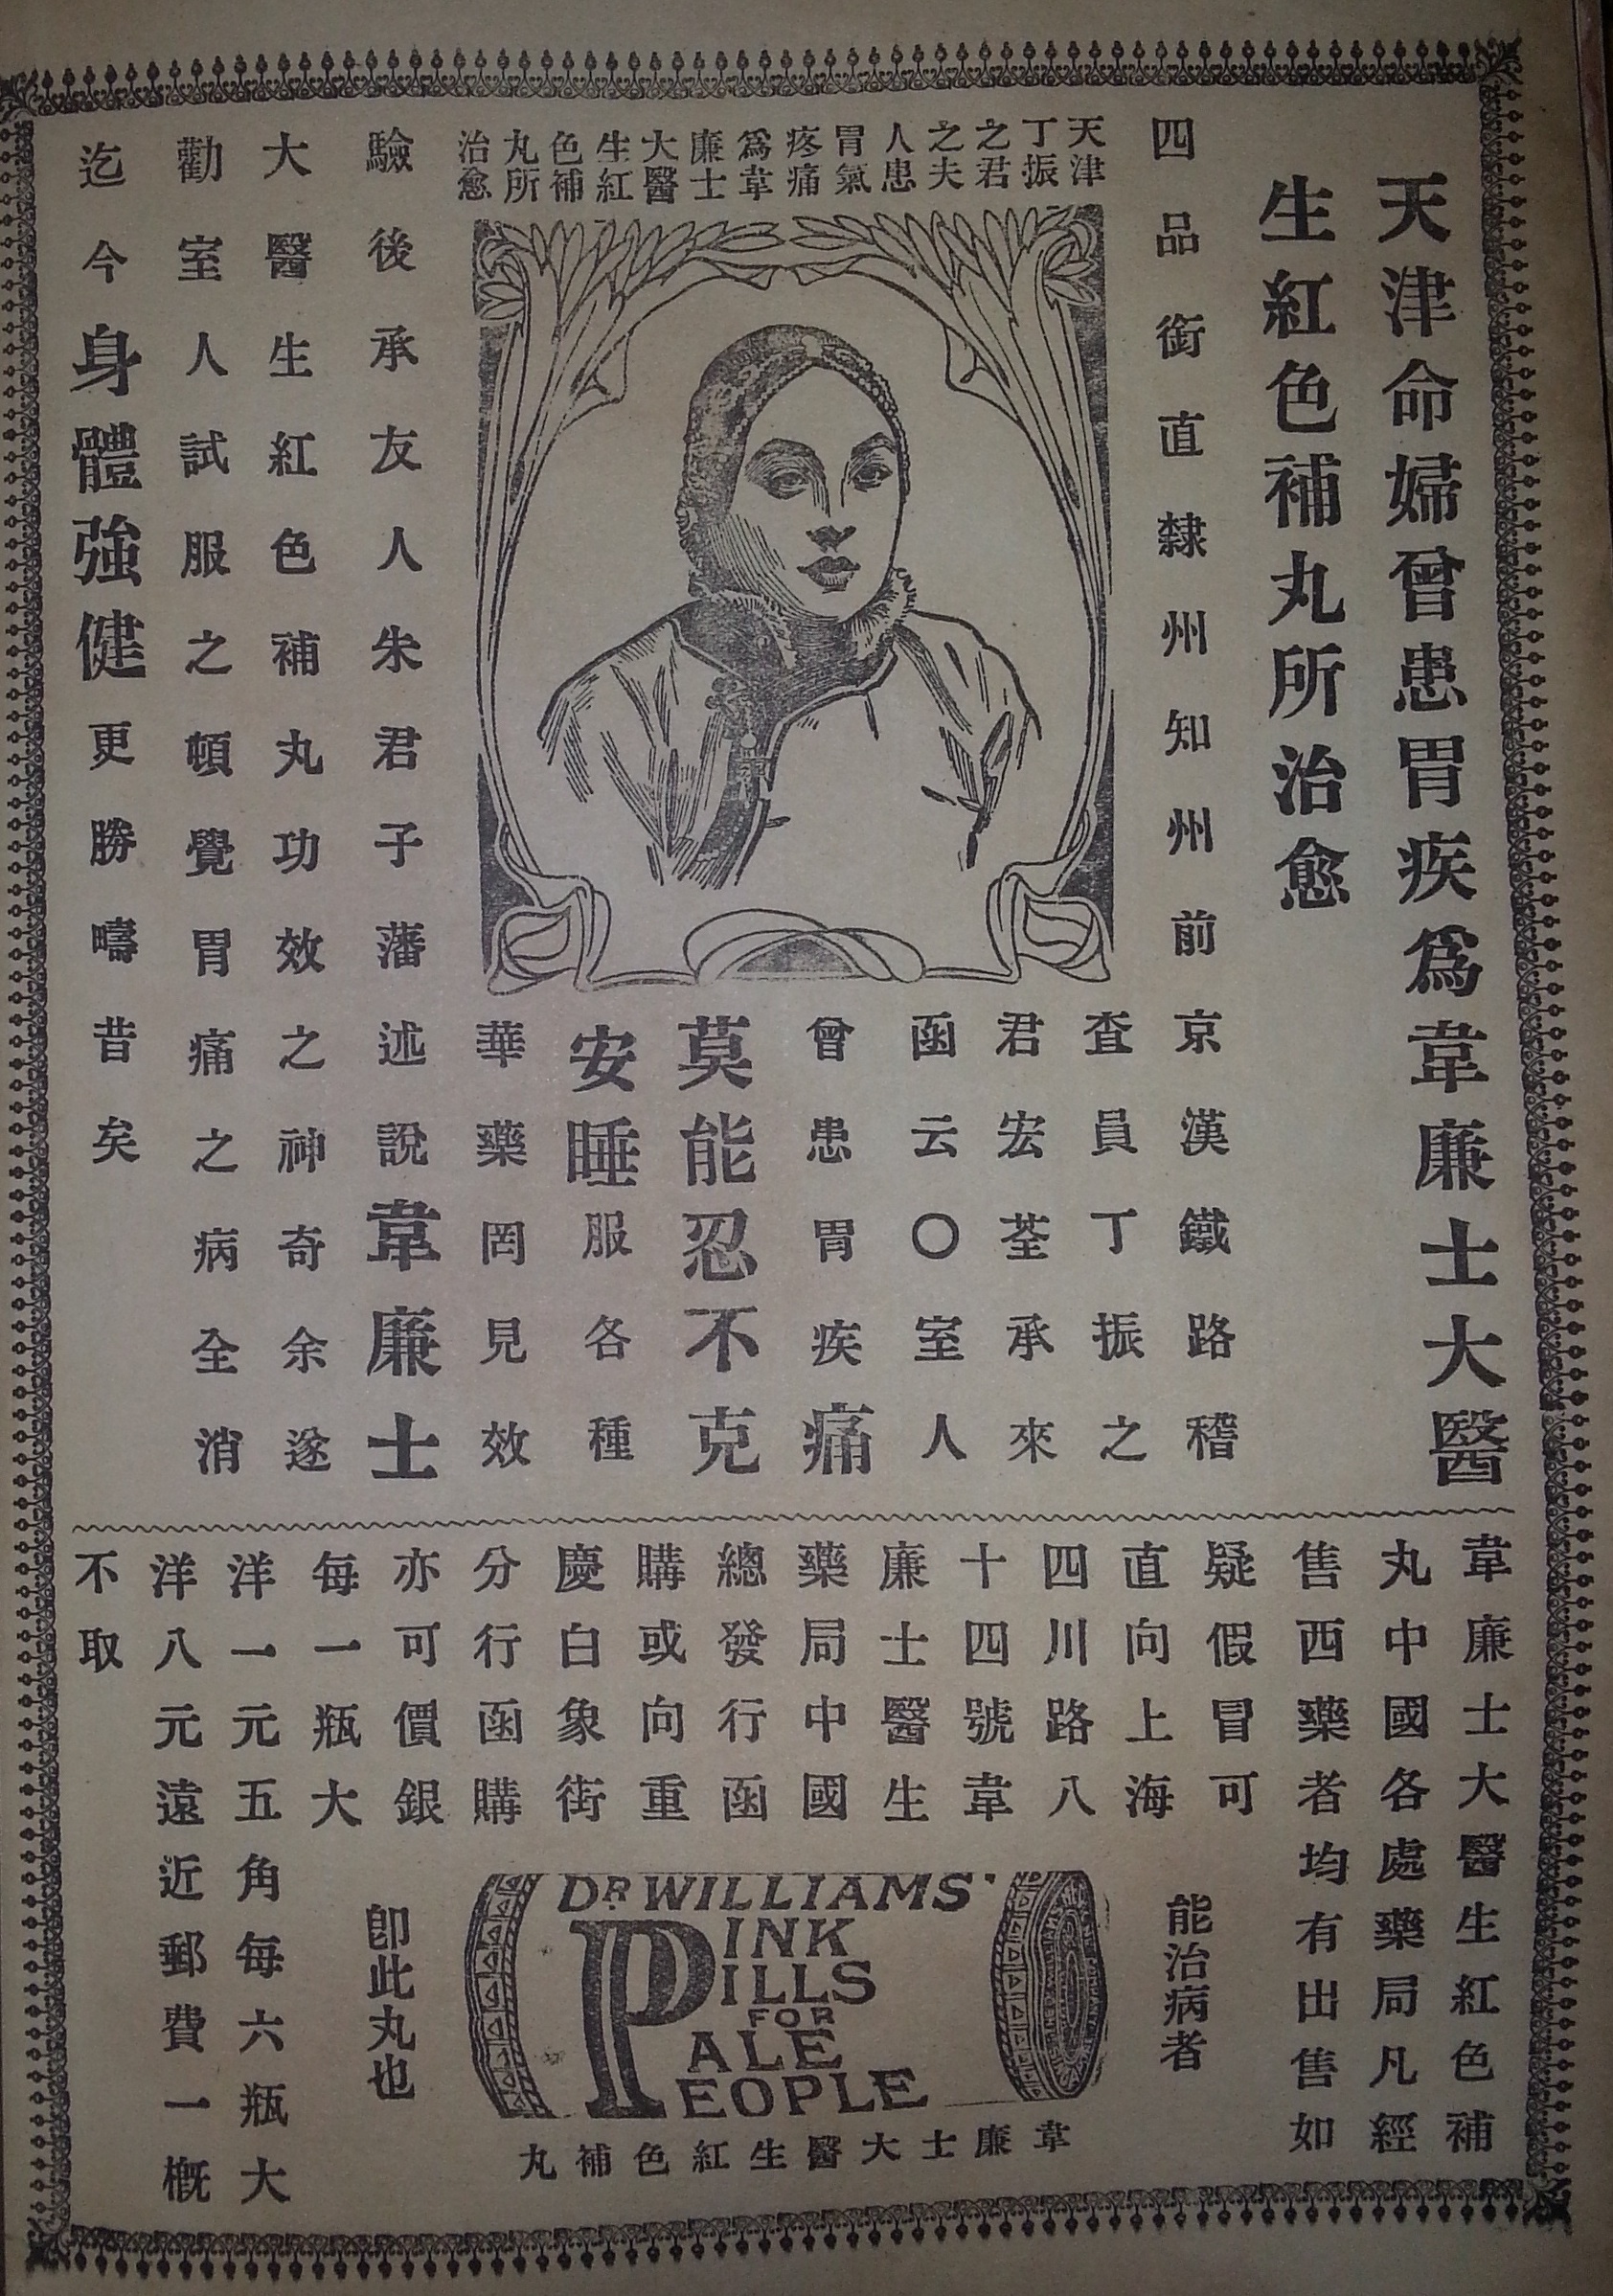 天津命婦曾患胃疾爲韋廉士大醫
生紅色補丸所治愈
四品銜直隸州知州前京漢鐵路稽
查員丁振之
君宏荃承來
函云〇室人
曾患胃疾痛
莫能忍不克
安睡服各種
華藥罔見效
驗後承友人朱君子藩述說韋廉士
大醫生紅色補丸功效之神奇余遂
勸室人試服之頓覺胃痛之病全消
迄今身體強健更勝疇昔矣
天津
丁振
之君
之夫
人患
胃氣
疼痛
爲韋
廉士
大醫
生紅
色補
丸所
治愈
韋廉士大醫生紅色補
丸中國各處藥局凡經
售西藥者均有出售如
疑假冒可
直向上海
四川路八
十四號韋
廉士醫生
藥局中國
總發行函
購或向重
慶白象街
分行函購
亦可價銀
每一瓶大
洋一元五角每六瓶大
洋八元遠近郵費一概
不取
能治病者
DR WILLIAMS'
PINK
PILLS
FOR
PALE
PEOPLE
韋廉士大醫生紅色補丸
卽此丸也